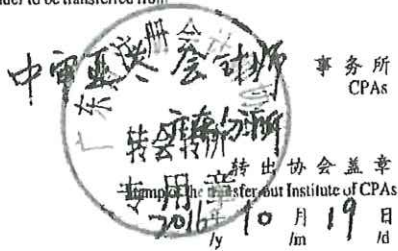 to be transferred from
中审亚太会计师 事务所
CPAs
广东分所
转会转所
专用章
转出协会盖章
Stamp of the transfer-out Institute of CPAs
2016年 10 月 19 日
/y /m /d